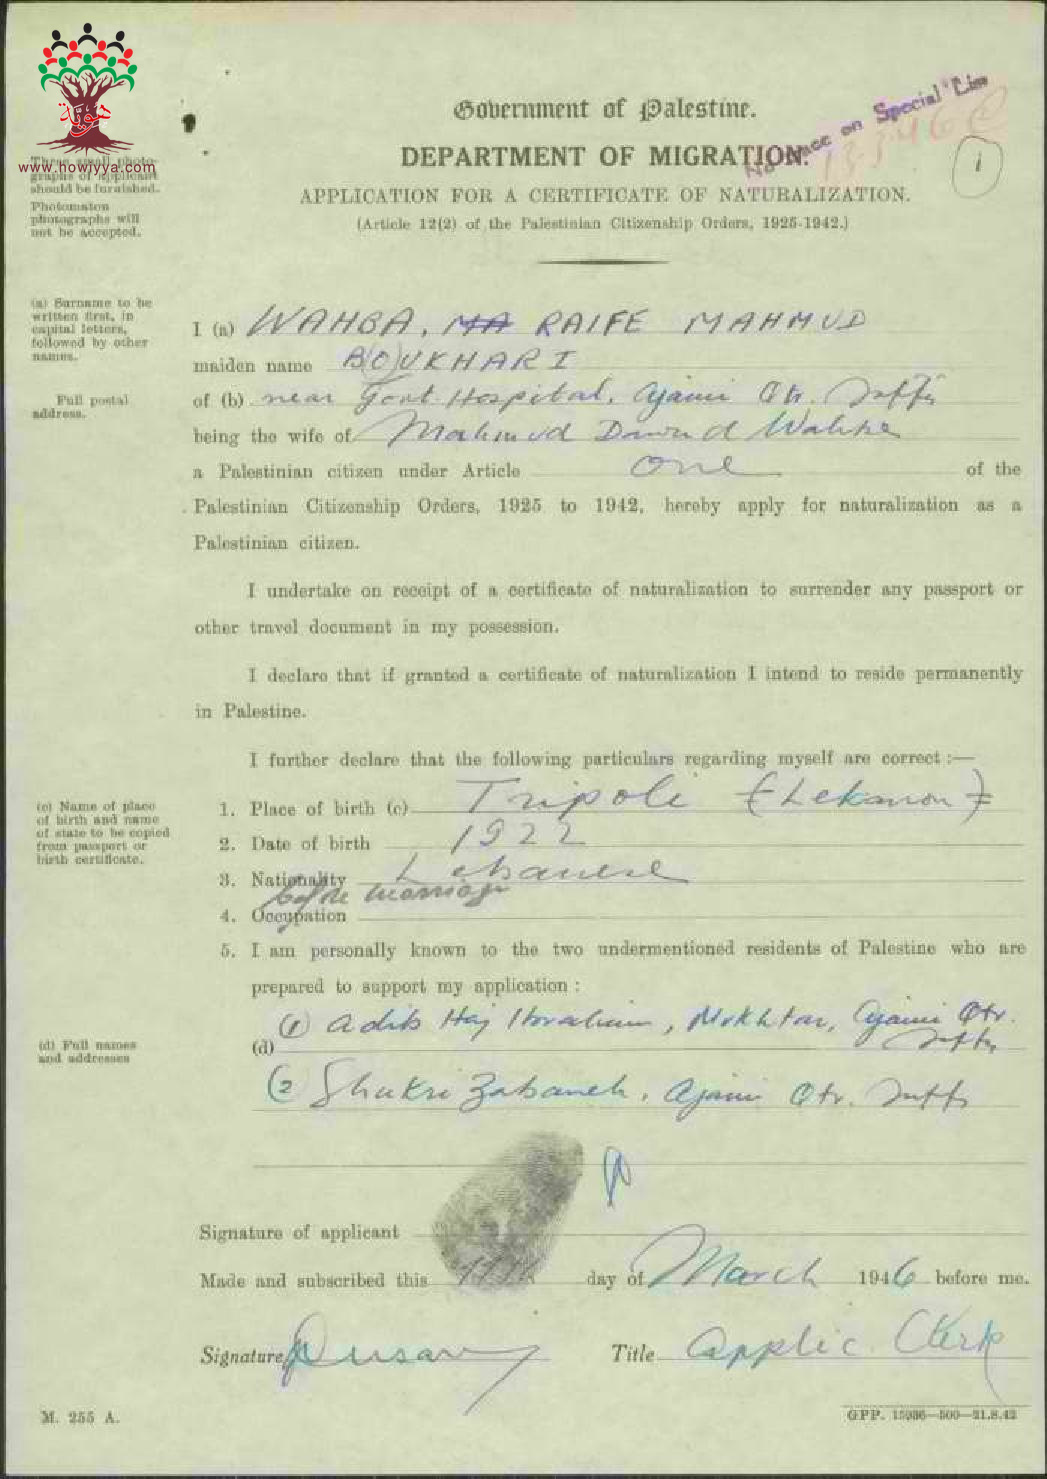 هوية
www.howiyya.com
Government of Palestine.
No trace on Special List
DEPARTMENT OF MIGRATION.
1
APPLICATION FOR A CERTIFICATE OF NATURALIZATION.
(Article 12(2) of the Palestinian Citizenship Orders, 1925-1942.)
Three small photo-
graphs of applicant
should be furnished.
Photomaton
photographs will
not be accepted.
(a) Surname to be
written first, in
capital letters,
followed by other
names.
I (a) WAHBA, MA RAIFE MAHMUD
maiden name B(O)UKHARI
Full postal
address.
of (b) near Govt. Hospital, Ajami Qtr. Jaffa
being the wife of Mahmud Dawud Wahba
a Palestinian citizen under Article one of the
Palestinian Citizenship Orders, 1925 to 1942, hereby apply for naturalization as a
Palestinian citizen.
I undertake on receipt of a certificate of naturalization to surrender any passport or
other travel document in my possession.
I declare that if granted a certificate of naturalization I intend to reside permanently
in Palestine.
I further declare that the following particulars regarding myself are correct :—
(c) Name of place
of birth and name
of state to be copied
from passport or
birth certificate.
1. Place of birth (c) Tripoli (Lebanon)
2. Date of birth 1922
3. Nationality Lebanese
before marriage
4. Occupation
5. I am personally known to the two undermentioned residents of Palestine who are
prepared to support my application :
(d) Full names
and addresses
(1) Adib Haj Ibrahim, Mukhtar, Ajami Qtr.
Jaffa
(d)
(2) Shukri Zabaneh, Ajami Qtr. Jaffa
Signature of applicant
Made and subscribed this 11th day of March 1946 before me.
Signature Title Applic. Clerk
M. 255 A.
GPP. 15036—500—21.8.42